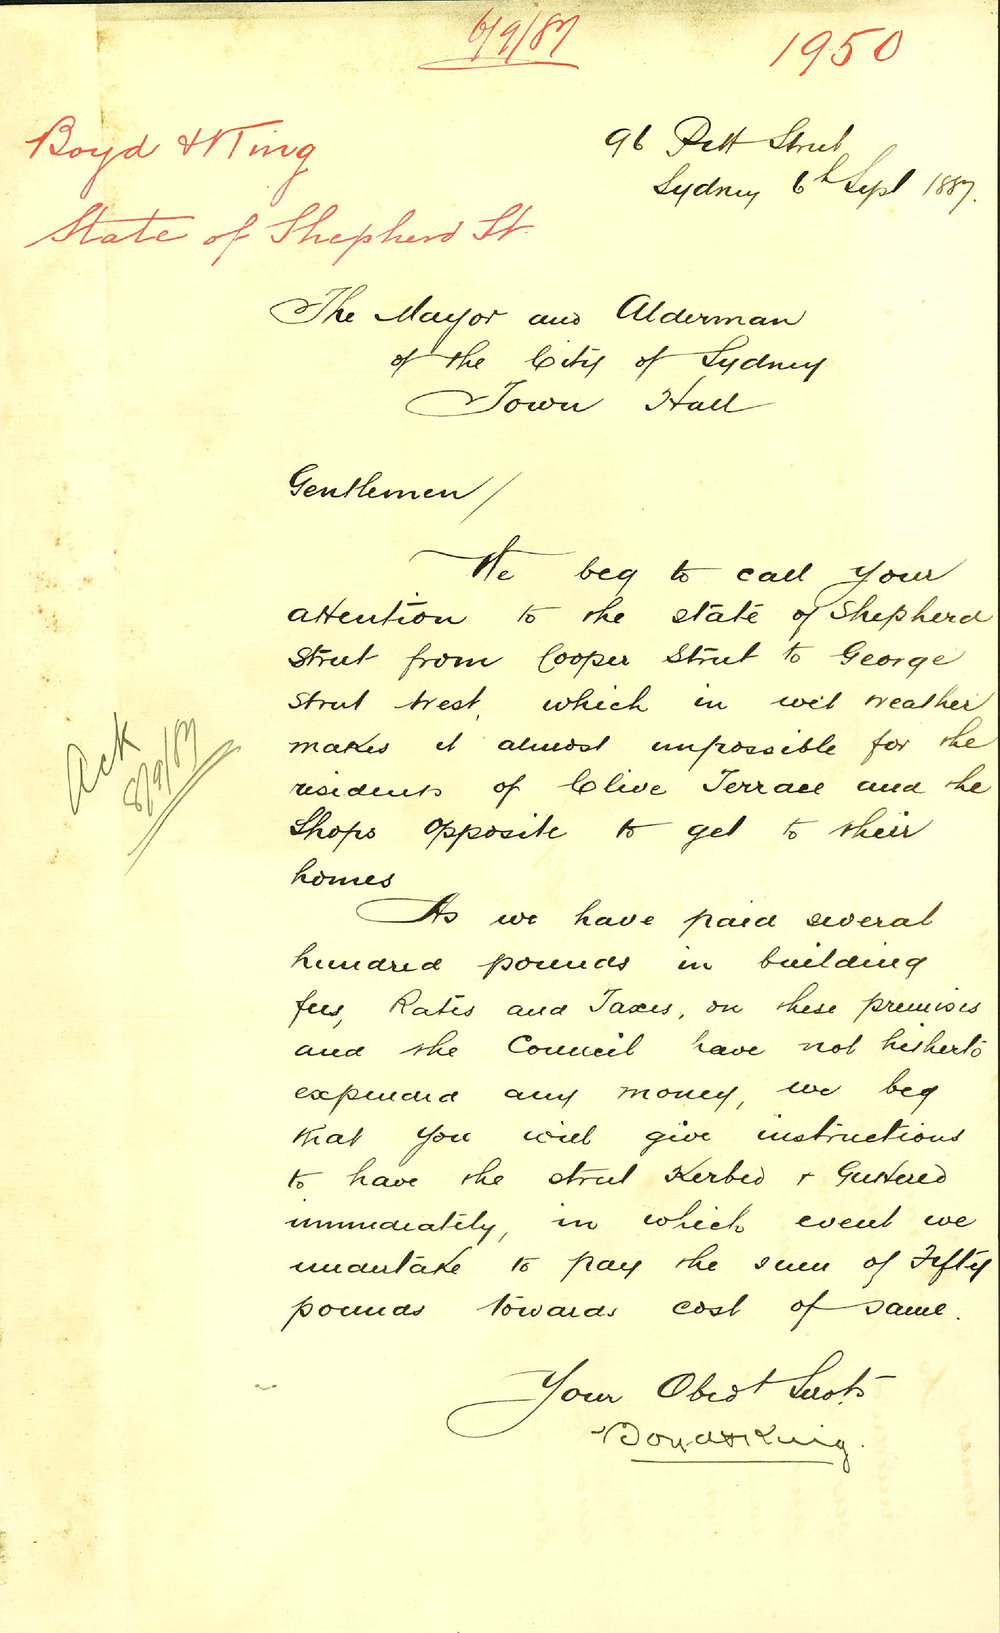 6/9/87
1950
Boyd & King
State of Shepherd St.
96 Pitt Street
Sydney 6th Sept 1887.
The Mayor and Alderman
of the City of Sydney
Town Hall
Gentlemen/
We beg to call your
attention to the state of Shepherd
Street from Cooper Street to George
Street West, which in wet weather
makes it almost impossible for the
residents of Clive Terrace and the
Shops opposite to get to their
homes
As we have paid several
hundred pounds in building
fees, Rates and Taxes, on these premises
and the Council have not hitherto
expended any money, we beg
that you will give instructions
to have the street Kerbed & Guttered
immediately, in which event we
undertake to pay the sum of Fifty
pounds towards cost of same.
Your Obedt Servts
Boyd & King.
Ack
8/9/87